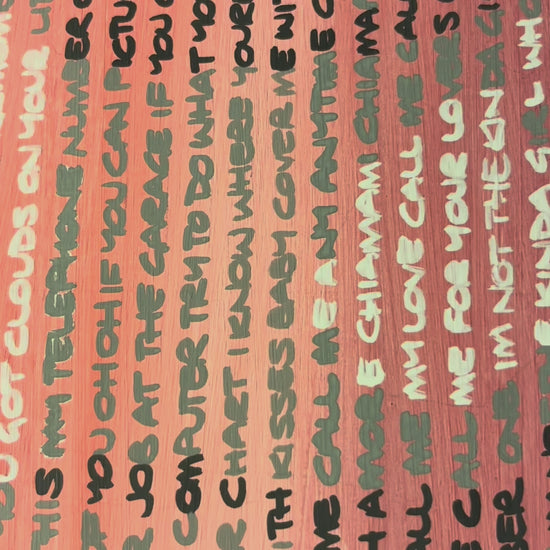 U GOT CLOUDS ON YOUR LI
THIS MY TELEPHONE NUMBER O
IF YOU OH OH IF YOU CAN PICTU
R JOB AT THE GARAGE IF YOU C
COMPUTER TRY TO DO WHAT YO
R CHAET I KNOW WHERE YOUR
ITH KISSES BABY COVER ME WIT
ME CALL ME A NY ANYTIME C
H AMORE CHIAMAMI CHIAMA
ALL ME MY LOVE CALL ME CAL
E CALL ME FOR YOUR LOVES
BER ONE IM NOT THE KIN DA GI
E KINDA